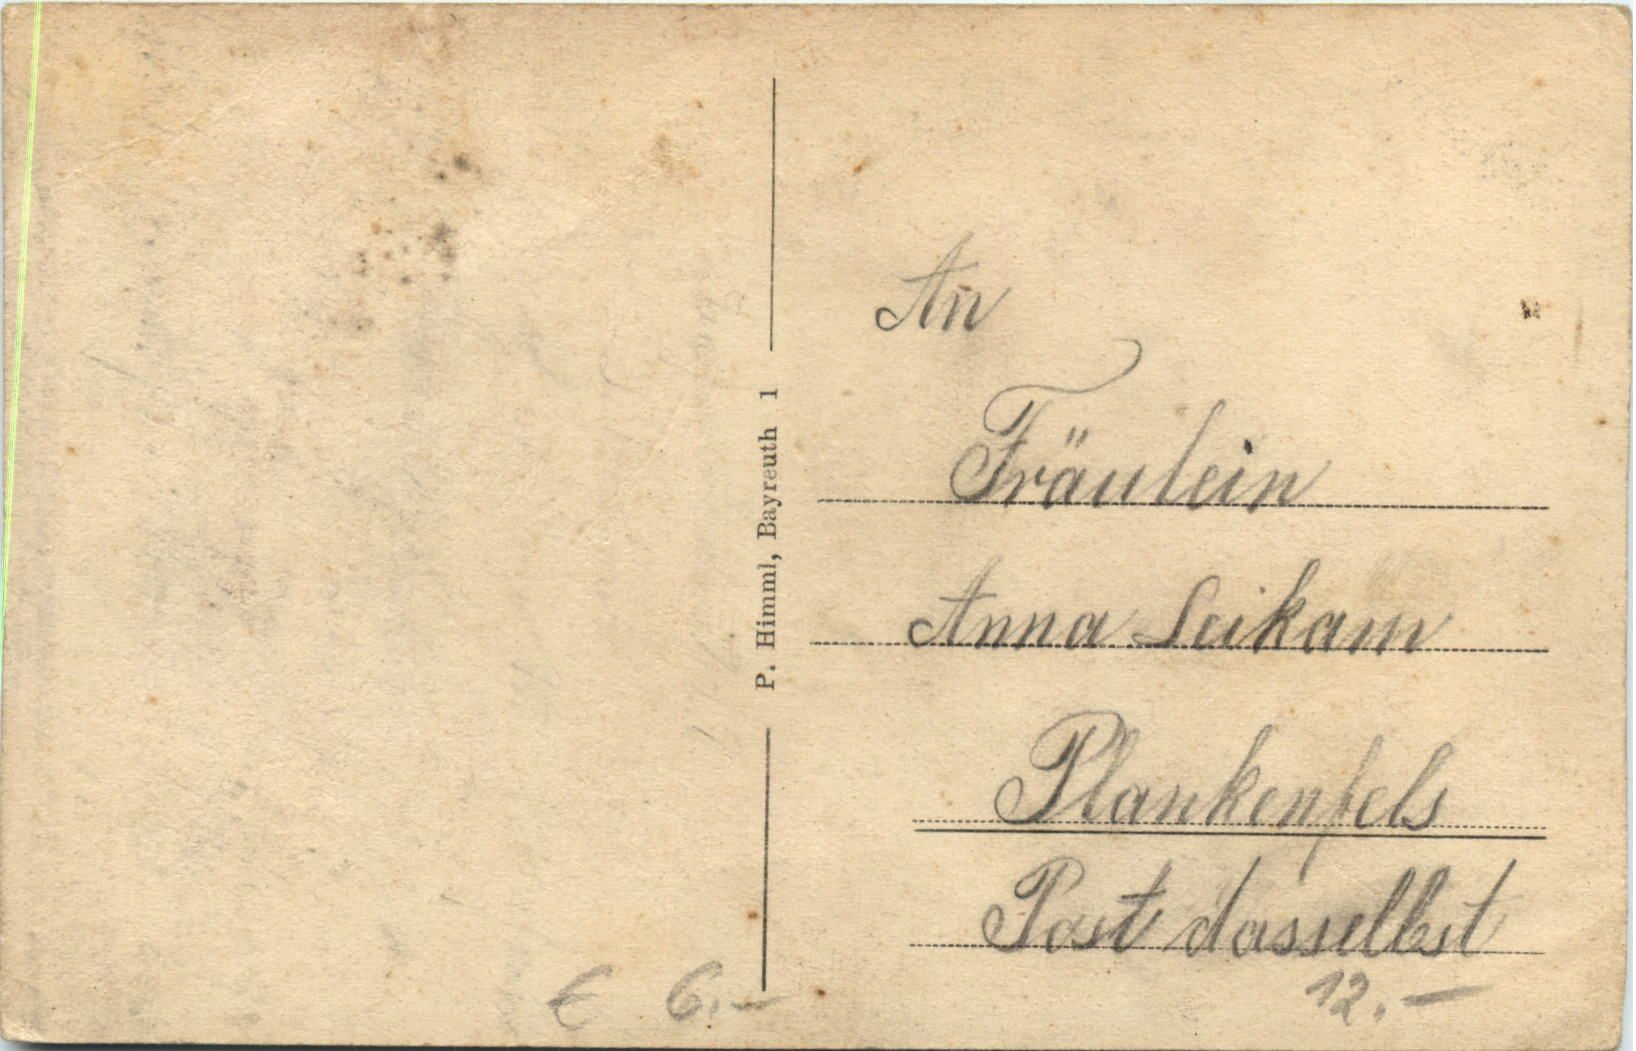 An
Fräulein
Anna Leikam
Plankenfels
Post dasselbst
P. Himml, Bayreuth 1
€ 6.-
12.-